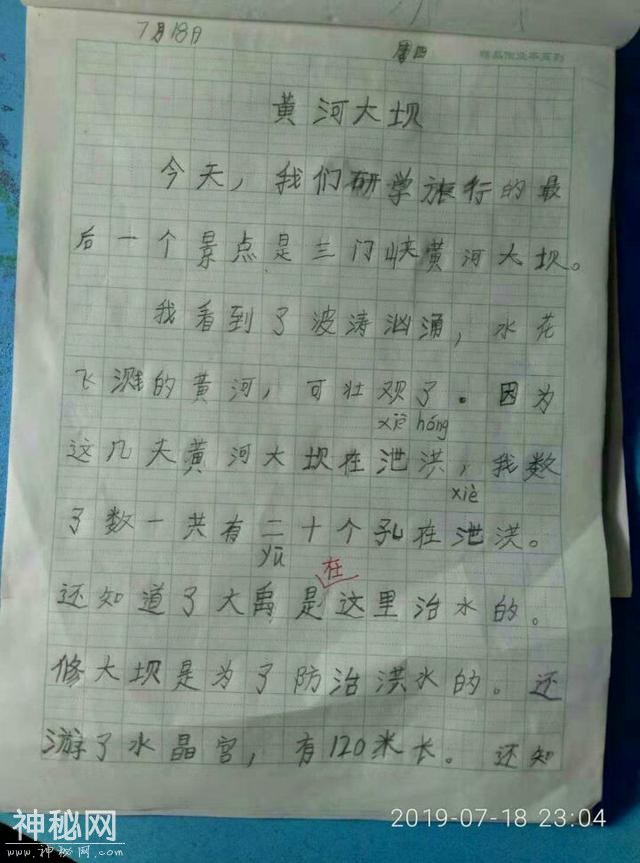 7月18日 周四
黄河大坝
今天，我们研学旅行的最
后一个景点是三门峡黄河大坝。
我看到了波涛汹涌，水花
飞溅的黄河，可壮观了。因为
xiè hóng
这几天黄河大坝在泄洪，我数
xiè
了数一共有二十个孔在泄洪。
yǔ
在
还知道了大禹是这里治水的。
修大坝是为了防治洪水的。还
游了水晶宫，有120米长。还知
2019-07-18 23:04
神秘网
www.神秘网.com